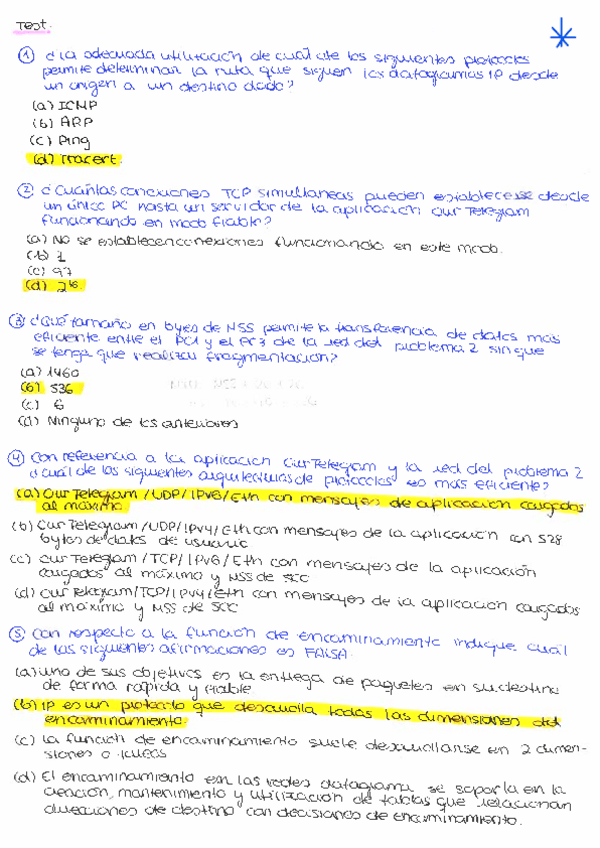 Test.
① ¿La adecuada utilización de cuál de los siguientes protocolos
permite determinar la ruta que siguen los datagramas IP desde
un origen a un destino dado?
(a) ICMP
(b) ARP
(c) Ping
(d) Tracert.
② ¿Cuántas conexiones TCP simultaneas pueden establecerse desde
un único PC hasta un servidor de la aplicación OurTelegram
funcionando en modo fiable?
(a) No se establecen conexiones funcionando en este modo.
(b) 1
(c) 97
(d) 2¹⁶
③ ¿Qué tamaño en bytes de MSS permite la transferencia de datos más
eficiente entre el PC1 y el PC3 de la red del problema 2 sin que
se tenga que realizar fragmentación?
(a) 1460
(b) 536
(c) 6
(d) Ninguno de los anteriores
④ Con referencia a la aplicación OurTelegram y la red del problema 2
¿cuál de las siguientes arquitecturas de protocolos es más eficiente?
(a) OurTelegram/UDP/IPv6/Eth con mensajes de aplicación cargados
al máximo
(b) OurTelegram/UDP/IPv4/Eth con mensajes de la aplicación con 528
bytes de datos de usuario
(c) OurTelegram/TCP/IPv6/Eth con mensajes de la aplicación
cargados al máximo y MSS de 500
(d) OurTelegram/TCP/IPv4/Eth con mensajes de la aplicación cargados
al máximo y MSS de 500
⑤ Con respecto a la función de encaminamiento indique cuál
de las siguientes afirmaciones es FALSA.
(a) Uno de sus objetivos es la entrega de paquetes en su destino
de forma rápida y fiable
(b) IP es un protocolo que desarrolla todas las dimensiones del
encaminamiento.
(c) La función de encaminamiento suele desarrollarse en 2 dimen-
siones o tareas
(d) El encaminamiento en las redes datagrama se soporta en la
creación, mantenimiento y utilización de tablas que relacionan
direcciones de destino con decisiones de encaminamiento.